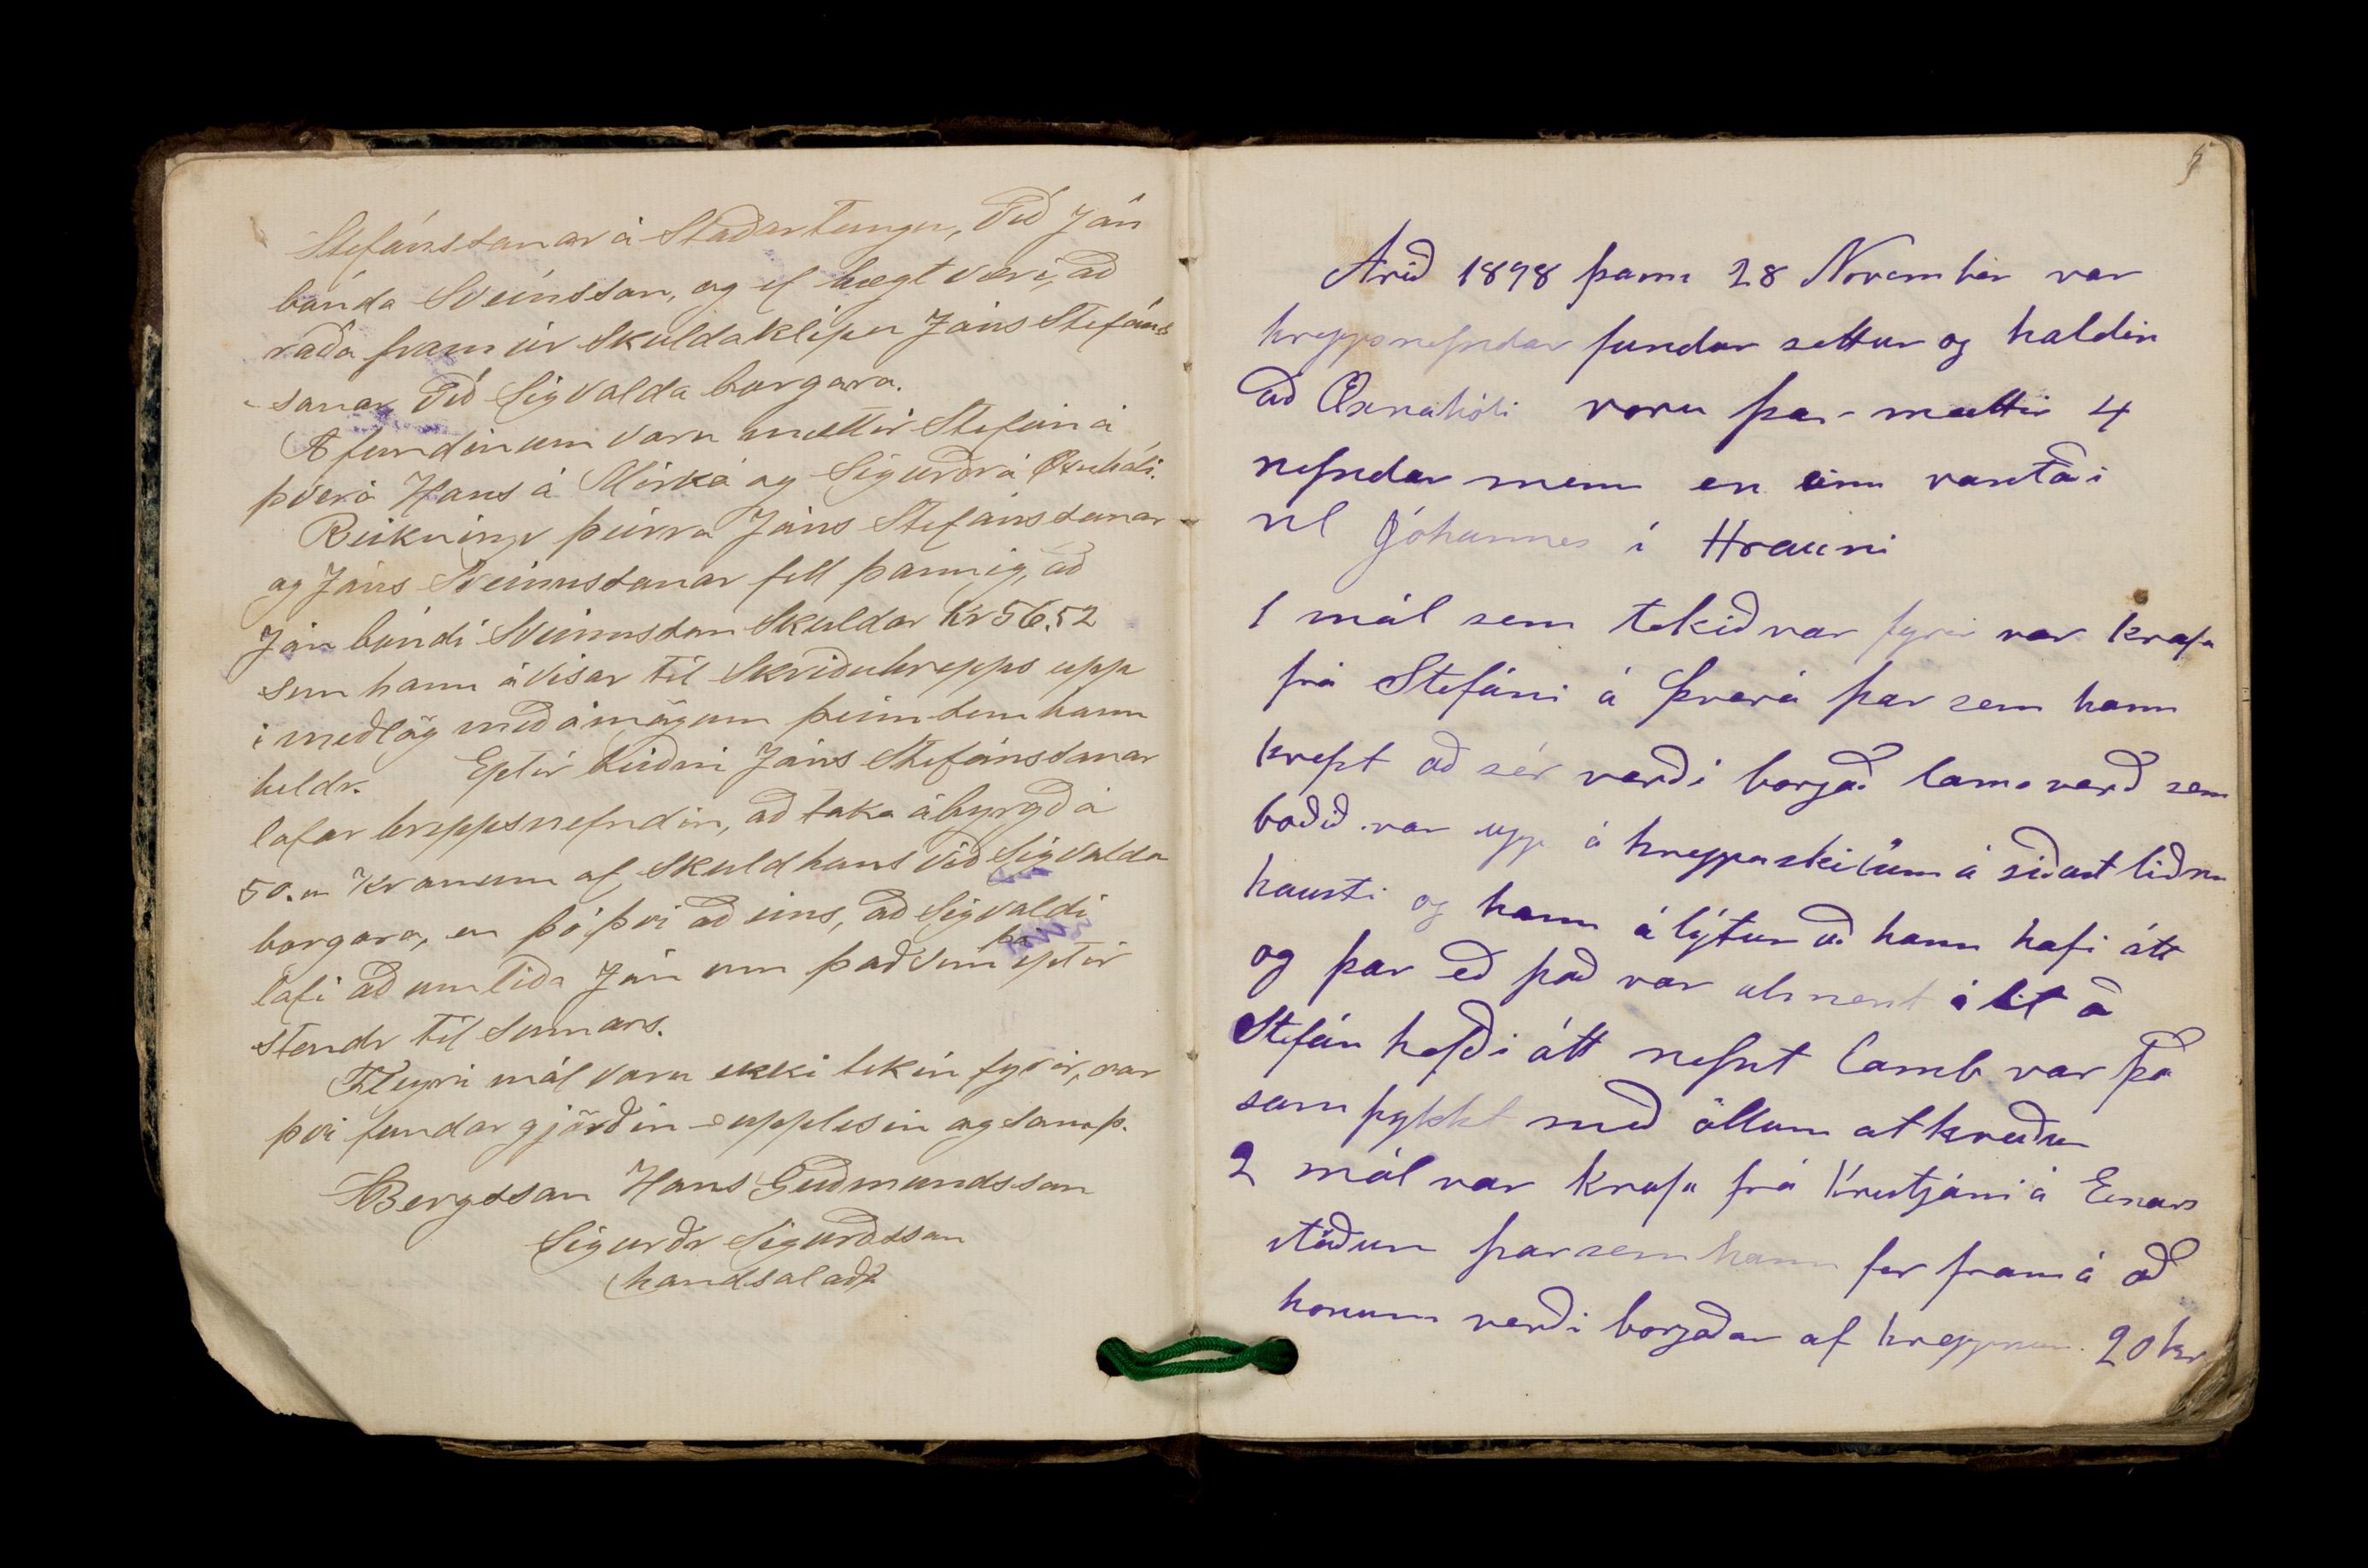 Stefánssonar á Staðartungu, við Jón
bónda Sveinsson, og ef hægt væri, að
ráða fram úr skuldaklípu Jóns Stefáns
sonar við Sigvalda borgara.
Á fundinum voru mættir Stefán á
þverá Hans á Mirká og Sigurðr á Öxnhóli.
Reikningr þeirra Jóns Stefánssonar
og Jóns Sveinnssonar fell þannig, að
Jón bóndi Sveinnsson skuldar kr 56.52
sem hann ávísar til Skriðuhrepps upp
í meðlög með ómögum þeim sem hann
heldr. Eptir beiðni Jóns Stefánssonar
lofar hreppsnefndin, að taka ábyrgð á
50. krónum af skuld hans við Sigvalda
borgara, en þó því að eins, að Sigvaldi
lofi að umlíða Jón um það sem þá eptir
stendr til sumars.
Fleyri mál voru ekki tekin fyrir, var
því fundargjörðin upplesin og samþ.
SBergsson Hans Guðmundsson
Sigurðr Sigurðsson
handsalað
5
Árið 1898 þann 28 November var
hreppsnefndar fundur settur og haldin
að Öxnahóli voru þar mættir 4
nefndar menn en einn vantaði
nl Jóhannes í Hrauni
1 mál sem tekið var fyrir var krafa
frá Stefáni á þverá þar sem hann
krefst að sér verði borgað lams verð sem
boðið var upp á hreppaskilum á síðast liðnu
hausti og hann álýtur að hann hafi átt
og þar eð það var alment álit að
Stefán hefði átt nefnt lamb var það
samþykkt með öllum atkvæðum
2 mál var krafa frá Kristjáni á Einars
stöðum þar sem hann fer fram á að
honum verði borgaðar af hreppnum 20 kr